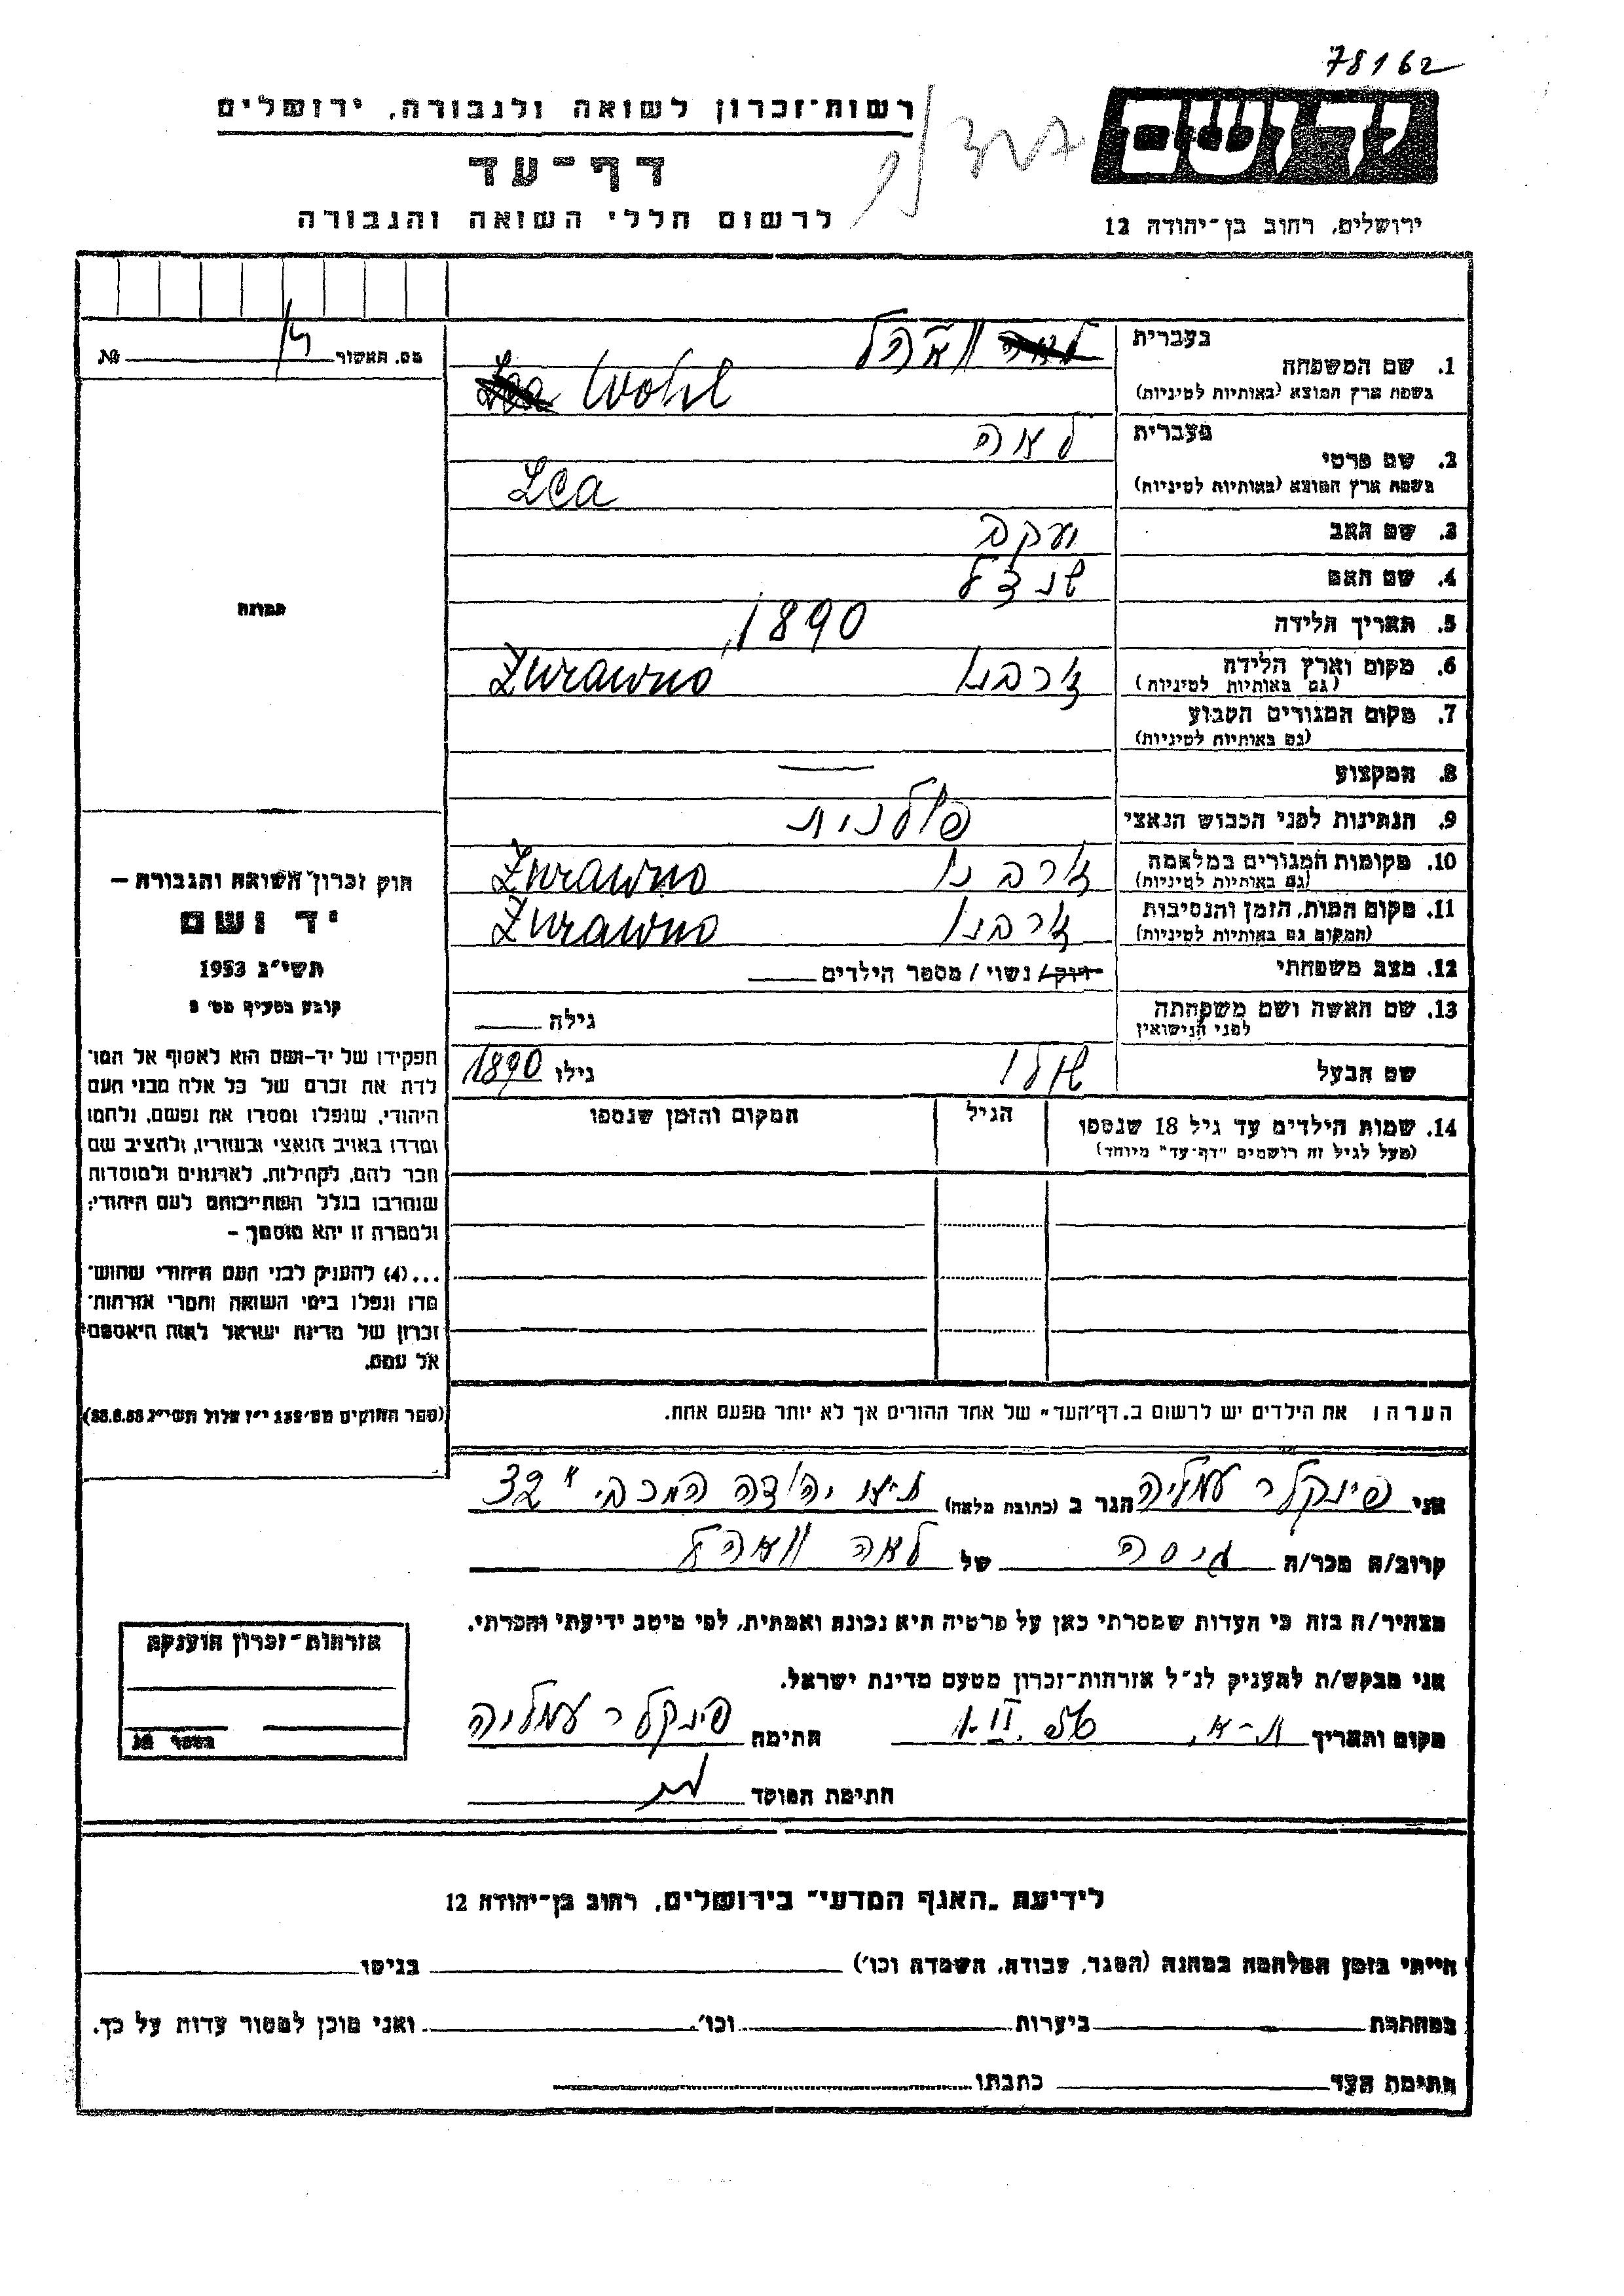 78162
רשות-זכרון לשואה ולגבורה, ירושלים
ידושם
דף-עד
לרשום חללי השואה והגבורה
ירושלים, רחוב בן-יהודה 12
מס. האשור № 
בעברית
1. שם המשפחה וואהל
בשפת ארץ המוצא (באותיות לטיניות) Wohl
בעברית
2. שם פרטי לאה
בשפת ארץ המוצא (באותיות לטיניות) Lea
3. שם האב יעקב
4. שם האם שנדל
תמונה
5. תאריך הלידה 1890
6. מקום וארץ הלידה זורבנו Zurawno
(גם באותיות לטיניות)
7. מקום המגורים הקבוע
(גם באותיות לטיניות)
8. המקצוע —
9. הנתינות לפני הכבוש הנאצי פולנית
10. מקומות המגורים במלחמה זורבנו Zurawno
(גם באותיות לטיניות)
11. מקום המות, הזמן והנסיבות זורבנו Zurawno
(המקום גם באותיות לטיניות)
12. מצב משפחתי רווק/ נשוי / מספר הילדים
13. שם האשה ושם משפחתה
לפני הנישואין
גילה
שם הבעל גילו 1890
14. שמות הילדים עד גיל 18 שנספו
(מעל לגיל זה רושמים "דף-עד" מיוחד)
הגיל
המקום והזמן שנספו
הערה: את הילדים יש לרשום ב"דף-העד" של אחד ההורים אך לא יותר מפעם אחת.
חוק זכרון השואה והגבורה –
יד ושם
תשי"ג 1953
קובע בסעיף מס'
תפקידו של יד-ושם הוא לאסוף אל המו־
לדת את זכרם של כל אלה מבני העם
היהודי, שנפלו ומסרו את נפשם, נלחמו
ומרדו באויב הנאצי ובעוזריו, ולהציב שם
וזכר להם, לקהילות, לארגונים ולמוסדות
שנחרבו בגלל השתייכותם לעם היהודי;
ולמטרה זו יהא מוסמך –
...(4) להעניק לבני העם היהודי שהוש־
מדו ונפלו בימי השואה והמרי אזרחות־
זכרון של מדינת ישראל לאות היאספם
אל עמם.
(ספר החוקים מס' 132 י"ז אלול תשי"ג
אני פינקלר עמליה הגר ב (כתובת מלאה) ת"א יהודה המכבי 32
קרוב/ה מכר/ה גיסה של לאה וואהל
מצהיר/ה בזה כי העדות שמסרתי כאן על פרטיה היא נכונה ואמתית, לפי מיטב ידיעתי והכרתי.
אני מבקש/ת להעניק לנ"ל אזרחות-זכרון מטעם מדינת ישראל.
מקום ותאריך ת-א, חתימה פינקלר עמליה
חתימת הפוקד
אזרחות-זכרון הוענקה
לידיעת "האגף המדעי" בירושלים, רחוב בן-יהודה 12
הייתי בזמן המלחמה במחנה (הסגר, עבודה, השמדה וכו') בגיטו
במחתרת ביערות וכו' ואני מוכן למסור עדות על כך.
חתימת העד כתבתו